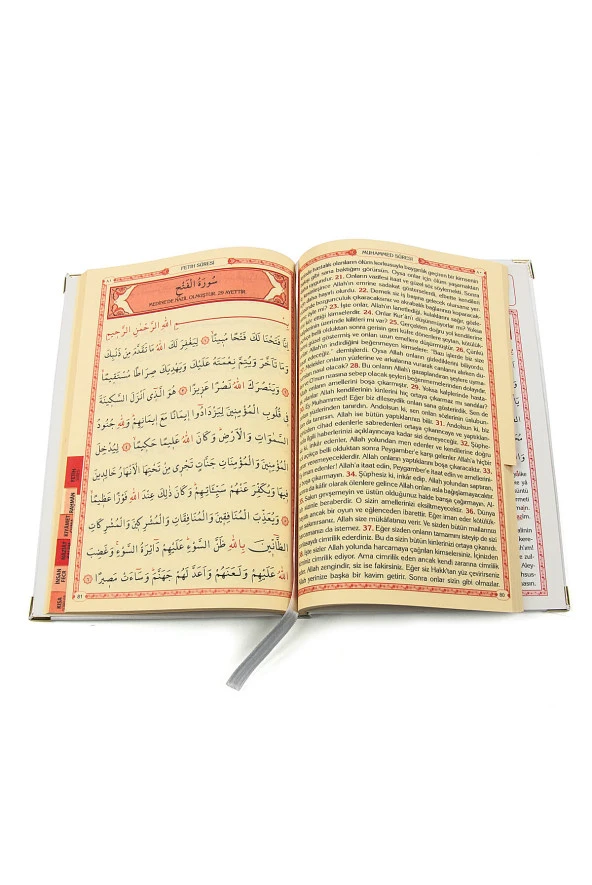 FETİH SÛRESİ
سُورَةُ الْفَتْحِ
MEDİNE'DE NAZİL OLMUŞTUR. 29 AYETTİR.
بِسْــــــمِ اللهِ الرَّحْمٰنِ الرَّحِيمِ
اِنَّا فَتَحْنَا لَكَ فَتْحًا مُبِينًاۙ ﴿١﴾ لِيَغْفِرَ لَكَ اللهُ مَا تَقَدَّمَ مِنْ ذَنْبِكَ
وَمَا تَاَخَّرَ وَيُتِمَّ نِعْمَتَهُ عَلَيْكَ وَيَهْدِيَكَ صِرَاطًا مُسْتَقِيمًاۙ
﴿٢﴾ وَيَنْصُرَكَ اللهُ نَصْرًا عَزِيزًا ﴿٣﴾ هُوَ الَّذِى اَنْزَلَ السَّكِينَةَ
فِى قُلُوبِ الْمُؤْمِنِينَ لِيَزْدَادُوا اِيمَانًا مَعَ اِيمَانِهِمْ وَلِلهِ جُنُودُ
السَّمٰوَاتِ وَالْاَرْضِ وَكَانَ اللهُ عَلِيمًا حَكِيمًاۙ ﴿٤﴾ لِيُدْخِلَ
الْمُؤْمِنِينَ وَالْمُؤْمِنَاتِ جَنَّاتٍ تَجْرِى مِنْ تَحْتِهَا الْاَنْهَارُ خَالِدِينَ
فِيهَا وَيُكَفِّرَ عَنْهُمْ سَيِّئَاتِهِمْ وَكَانَ ذٰلِكَ عِنْدَ اللهِ فَوْزًا عَظِيمًاۙ
﴿٥﴾ وَيُعَذِّبَ الْمُنَافِقِينَ وَالْمُنَافِقَاتِ وَالْمُشْرِكِينَ وَالْمُشْرِكَاتِ
الظَّانِّينَ بِاللهِ ظَنَّ السَّوْءِ عَلَيْهِمْ دَائِرَةُ السَّوْءِ وَغَضِبَ
اللهُ عَلَيْهِمْ وَلَعَنَهُمْ وَاَعَدَّ لَهُمْ جَهَنَّمَ وَسَاءَتْ مَصِيرًا ﴿٦﴾
81
FETİH
RAHMAN
KIYAMET
İNSAN
FECR
KISA
MUHAMMED SÛRESİ
hastalık olanların ölüm korkusuyla baygınlık geçiren bir kimsenin
gibi sana baktığını görürsün. Oysa onlar için ölüm yaşamaktan
21. Onların vazifesi itaat ve güzel söz söylemekti. Sonra
Allah'ın emrine sadakat gösterselerdi, elbette kendileri
daha hayırlı olurdu. 22. Demek siz iş başına gelecek olursanız yer-
bozgunculuk çıkaracaksınız ve akrabalık bağlarınızı koparacak-
mı? 23. İşte onlar, Allah'ın lanetlediği, kulaklarını sağır, gözle-
kimselerdir. 24. Onlar Kur'an'ı düşünmüyorlar mı? Yoksa
üzerinde kilitleri mi var? 25. Gerçekten doğru yol kendilerine
belli olduktan sonra gerisin geri küfre dönenlere şeytan, kötülük-
göstermiş ve onları uzun emellere düşürmüştür. 26. Çünkü
Allah'ın indirdiğini beğenmeyen kimselere: "Bazı işlerde size
edeceğiz." demişlerdi. Oysa Allah onların gizlediklerini biliyor.
onların yüzlerine ve arkalarına vurarak canlarını alırken du-
nasıl olacak? 28. Bu onların Allah'ı gazaplandıran şeylere uyma-
O'nun rızasına sebep olacak şeyleri beğenmemelerinden dolayıdır.
onların amellerini boşa çıkarmıştır. 29. Yoksa kalplerinde hasta-
Allah kendilerinin kinlerini hiç ortaya çıkarmaz mı sandılar?
Muhammed! Eğer biz dileseydik onları sana gösterirdik. Sen de
yüzlerinden tanırdın. Andolsun ki, sen onları sözlerinin üslubun-
tanırsın. Allah ise bütün yaptıklarınızı bilir. 31. Andolsun ki, biz
cihad edenlerle sabredenleri ortaya çıkarıncaya ve yaptıkları-
ilgili haberlerinizi açıklayıncaya kadar sizi deneyeceğiz. 32. Şüphe-
inkâr edenler, Allah yolundan men edenler ve kendilerine doğru
belli olduktan sonra Peygamber'e karşı gelenler Allah'a hiçbir
veremeyeceklerdir. Allah onların yaptıklarını boşa çıkaracaktır. 33.
iman edenler! Allah'a itaat edin, Peygamber'e itaat edin ve amelleri-
çıkarmayın. 34. Şüphesiz ki, inkâr edip, Allah yolundan saptıran,
da kâfir olarak ölenlere gelince Allah onları asla bağışlamayacaktır.
Sakın gevşemeyin ve üstün olduğunuz halde barışa çağırmayın. Al-
beraberdir. O sizin amellerinizi eksiltmeyecektir. 36. Dünya
ancak bir oyun ve eğlenceden ibarettir. Eğer iman eder kötülük-
Allah size mükâfatınızı verir. Ve sizden bütün mallarınızı
istemez. 37. Eğer sizden onların tamamını isteyip de sizi
cimrilik ederdiniz. Bu da sizin bütün kinlerinizi ortaya çıkarırdı.
38. İşte sizler Allah yolunda harcamaya çağrılan kimselersiniz. İçinizden
cimrilik ediyor. Ama cimrilik eden ancak kendi zararına cimrilik
Allah zengindir, siz ise fakirsiniz. Eğer siz Hakk'tan yüz çevirirseniz
yerinize başka bir kavim getirir. Sonra onlar sizin gibi olmazlar.
80